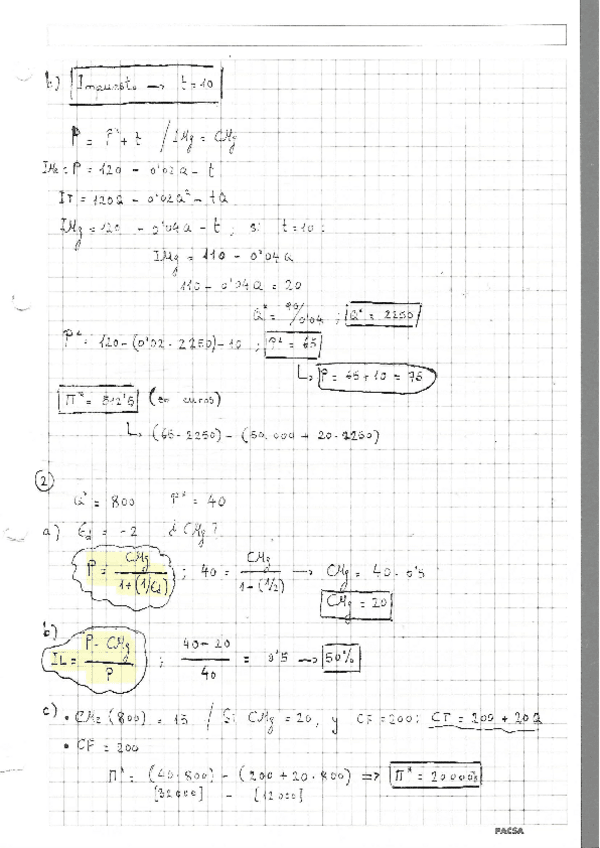 b) Impuesto → t=10
P = P* + t / IMg = CMg
IMe = P = 120 - 0'02Q - t
IT = 120Q - 0'02Q² - tQ
IMg = 120 - 0'04Q - t ; si t=10:
IMg = 110 - 0'04Q
110 - 0'04Q = 20
Q* = 90/0'04 ; Q* = 2250
P* = 120-(0'02·2250)-10 ; P* = 65
↳ P = 65+10 = 75
Π* = 512'5 (en euros)
↳ (65·2250) - (50.000 + 20·2250)
2
Q* = 800 P* = 40
a) Ed = -2 ¿CMg?
P = CMg/1+(1/Ed) ; 40 = CMg/1-(1/2) → CMg = 40·0'5
CMg = 20
b)
IL = P-CMg/P ; 40-20/40 = 0'5 → 50%
c) • CMe(800) = 15 / Si CMg=20, y CF=200: CT = 200 + 20Q
• CF = 200
Π* = (40·800) - (200+20·800) ⇒
[32000] - [12000]
PACSA